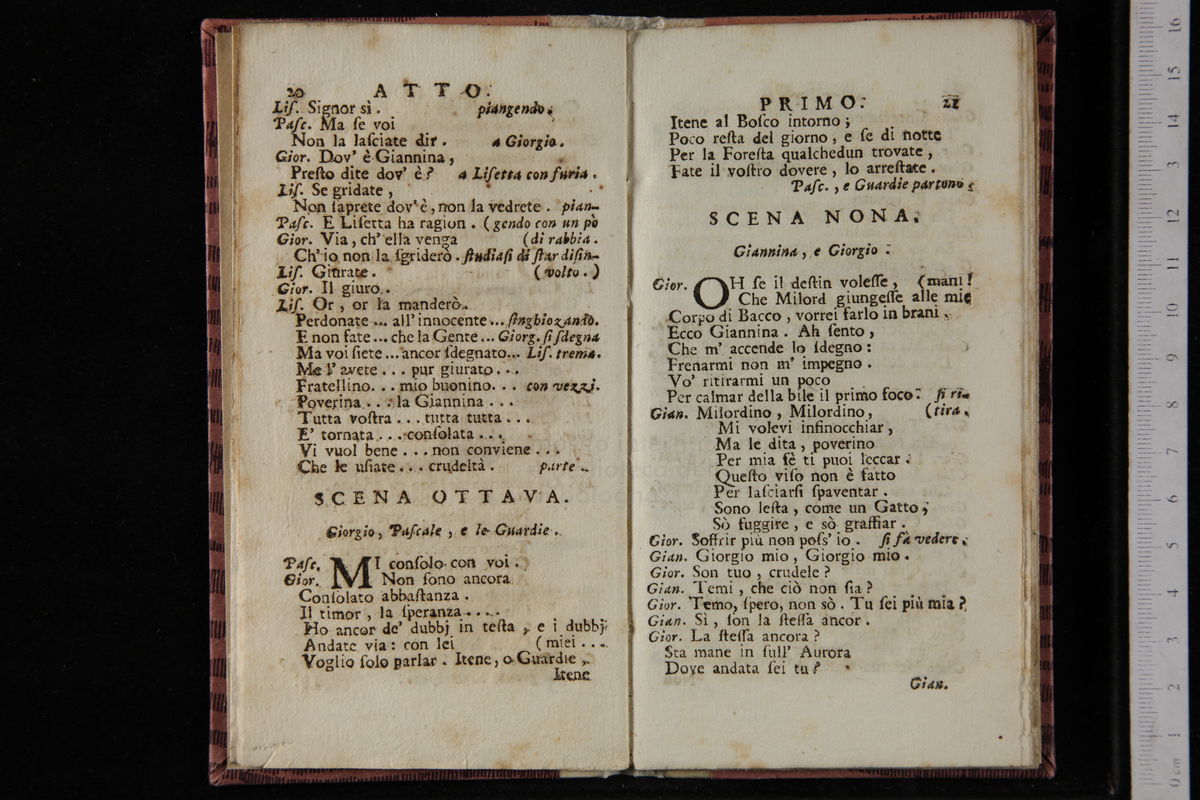 20 ATTO.
Liſ. Signor sì. piangendo.
Paſc. Ma ſe voi
Non la laſciate dir. a Giorgio.
Gior. Dov' è Giannina,
Preſto dite dov' è? a Liſetta con furia.
Liſ. Se gridate,
Non ſaprete dov' è, non la vedrete. pian-
Paſc. E Liſetta ha ragion. (gendo con un pò
Gior. Via, ch' ella venga (di rabbia.
Ch' io non la ſgriderò. ſtudiaſi di ſtar diſin-
Liſ. Giurate. (volto.)
Gior. Il giuro.
Liſ. Or, or la manderò.
Perdonate ... all' innocente ... ſinghiozando.
E non fate ... che la Gente ... Giorg. ſi ſdegna
Ma voi ſiete ... ancor ſdegnato... Liſ. trema.
Me l' avete ... pur giurato...
Fratellino... mio buonino... con vezzi.
Poverina ... la Giannina ...
Tutta voſtra ... tutta tutta ...
E' tornata ... conſolata ...
Vi vuol bene ... non conviene ...
Che le uſiate ... crudeltà. parte.
SCENA OTTAVA.
Giorgio, Paſcale, e le Guardie.
Paſc. MI conſolo con voi.
Gior. Non ſono ancora
Conſolato abbaſtanza.
Il timor, la ſperanza....
Ho ancor de' dubbj in teſta, e i dubbj
Andate via: con lei (miei ...
Voglio ſolo parlar. Itene, o Guardie,
Itene
PRIMO. 21
Itene al Boſco intorno;
Poco reſta del giorno, e ſe di notte
Per la Foreſta qualchedun trovate,
Fate il voſtro dovere, lo arreſtate.
Paſc., e Guardie partono.
SCENA NONA.
Giannina, e Giorgio.
Gior. OH ſe il deſtin voleſſe, (mani!
Che Milord giungeſſe alle mie
Corpo di Bacco, vorrei farlo in brani.
Ecco Giannina. Ah ſento,
Che m' accende lo ſdegno:
Frenarmi non m' impegno.
Vo' ritirarmi un poco
Per calmar della bile il primo foco. ſi ri-
Gian. Milordino, Milordino, (tira.
Mi volevi infinocchiar,
Ma le dita, poverino
Per mia fè ti puoi leccar.
Queſto viſo non è fatto
Per laſciarſi ſpaventar.
Sono leſta, come un Gatto,
Sò fuggire, e sò graffiar.
Gior. Soffrir più non poſs' io. ſi fà vedere.
Gian. Giorgio mio, Giorgio mio.
Gior. Son tuo, crudele?
Gian. Temi, che ciò non ſia?
Gior. Temo, ſpero, non sò. Tu ſei più mia?
Gian. Sì, ſon la ſteſſa ancor.
Gior. La ſteſſa ancora?
Sta mane in ſull' Aurora
Dove andata ſei tu?
Gian.
0 cm 1 2 3 4 5 6 7 8 9 10 11 12 13 14 15 16